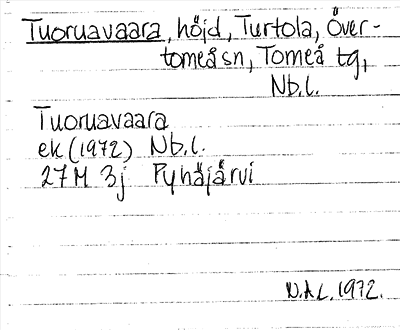 Tuoruavaara, höjd, Turtola, Över-
torneåsn, Torneå tg,
Nb.l.
Tuoruavaara
ek (1972) Nb.l.
27M 3j Pyhäjärvi
N.A.L. 1972.